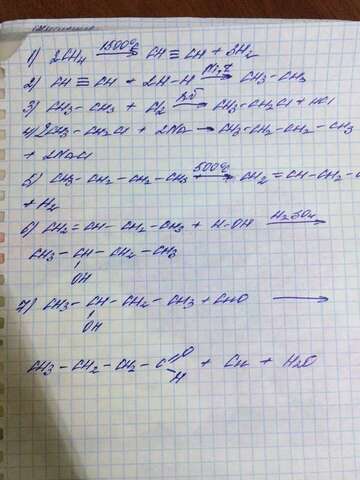 1) 2CH4 1500°C → CH ≡ CH + 3H2
2) CH ≡ CH + 2H-H Ni, t → CH3 - CH3
3) CH3 - CH3 + Cl2 → CH3 - CH2Cl + HCl
4) 2CH3 - CH2Cl + 2Na → CH3 - CH2 - CH2 - CH3
+ 2NaCl
5) CH3 - CH2 - CH2 - CH3 500°C → CH2 = CH - CH2 - C
+ H2
6) CH2 = CH - CH2 - CH3 + H-OH H2SO4 →
CH3 - CH - CH2 - CH3
OH
7) CH3 - CH - CH2 - CH3 + CuO →
OH
CH3 - CH2 - CH2 - C =O + Cu + H2O
H